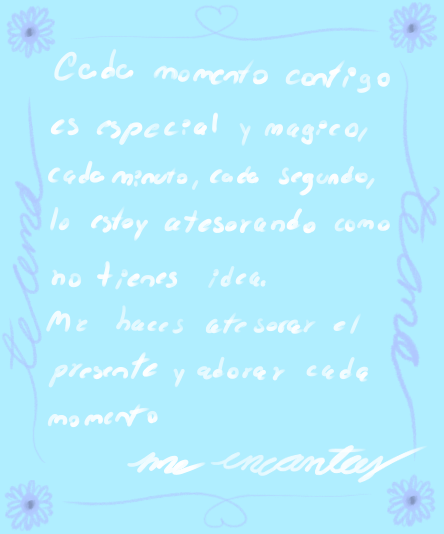 Cada momento contigo
es especial y magico,
cada minuto, cada segundo,
lo estoy atesorando como
no tienes idea.
Me haces atesorar el
presente y adorar cada
momento
me encantas